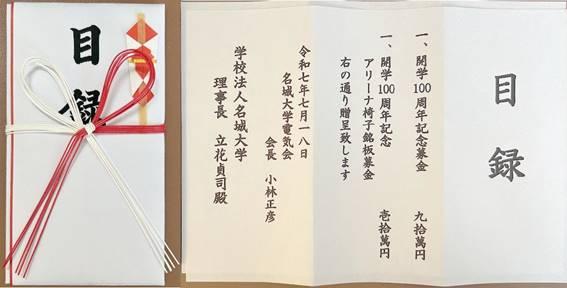 目録
目録
一、開学100周年記念募金　九拾萬円
一、開学100周年記念
アリーナ椅子銘板募金　壱拾萬円
右の通り贈呈致します
令和七年七月一八日
名城大学電気会
会長　小林正彦
学校法人名城大学
理事長　立花貞司殿